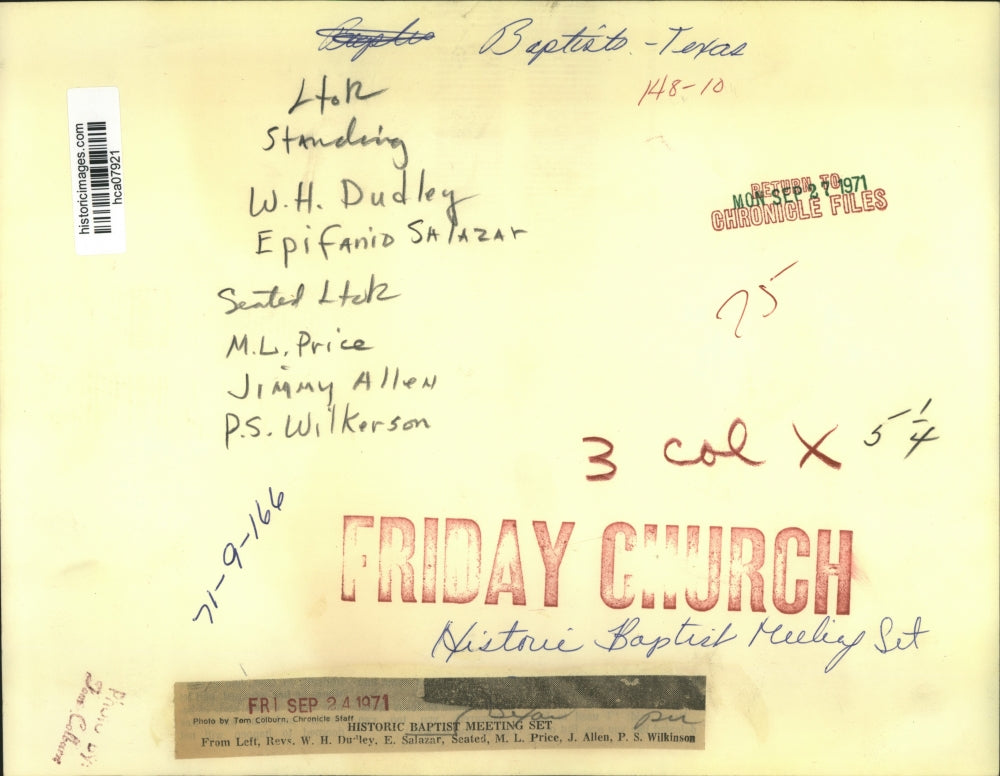 Baptists - Texas
148-10
L to R
Standing
W.H. Dudley
Epifanio Salazar
Seated L to R
M.L. Price
Jimmy Allen
P.S. Wilkerson
historicimages.com
hca07921
RETURN TO
MON SEP 27 1971
CHRONICLE FILES
75
3 col X 5 1/4
71-9-166
FRIDAY CHURCH
Historic Baptist Meeting Set
Photo by:
Tom Colburn
FRI SEP 24 1971
Photo by Tom Colburn, Chronicle Staff
HISTORIC BAPTIST MEETING SET
From Left, Revs. W. H. Dudley, E. Salazar, Seated, M. L. Price, J. Allen, P. S. Wilkinson